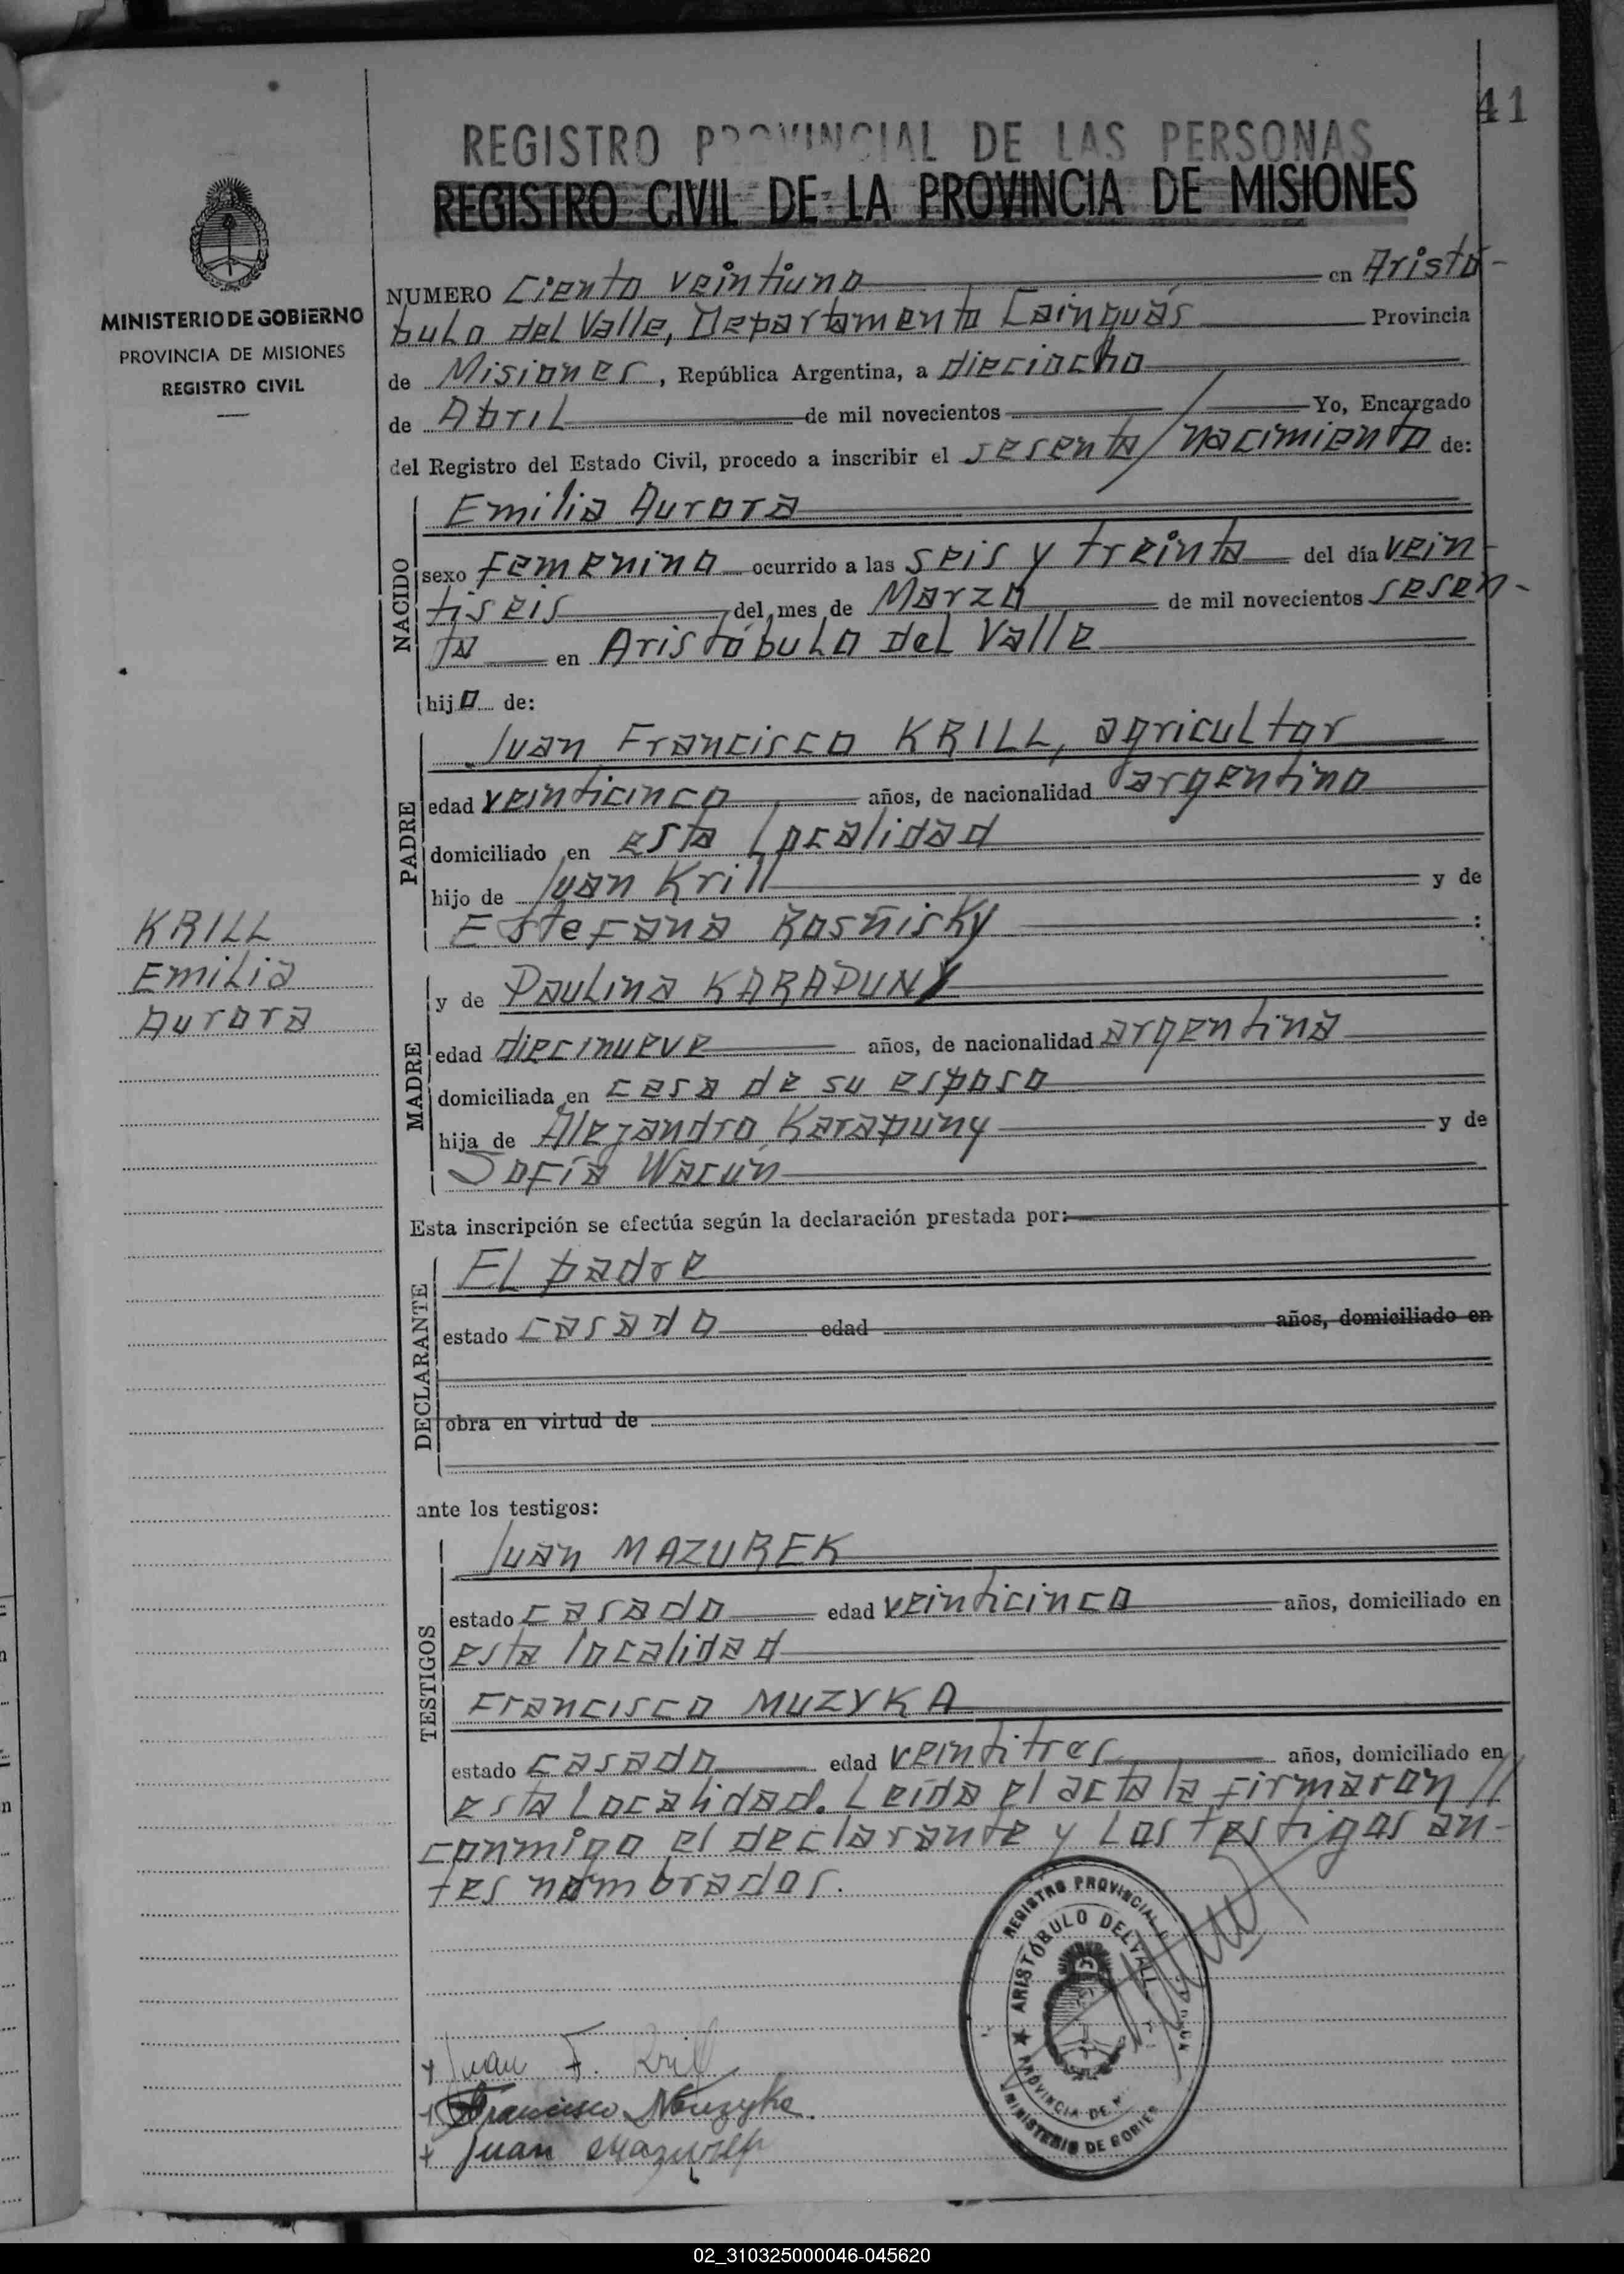 41
REGISTRO PROVINCIAL DE LAS PERSONAS
REGISTRO CIVIL DE LA PROVINCIA DE MISIONES
MINISTERIO DE GOBIERNO
PROVINCIA DE MISIONES
REGISTRO CIVIL
NUMERO Ciento veintiuno en Aristó-
bulo del Valle, Departamento Cainguás Provincia
de Misiones, República Argentina, a dieciocho
de Abril de mil novecientos Yo, Encargado
del Registro del Estado Civil, procedo a inscribir el sesenta/nacimiento de:
NACIDO
Emilia Aurora
sexo femenino ocurrido a las seis y treinta del día vein-
tiseis del mes de Marzo de mil novecientos sesen-
ta en Aristóbulo del Valle
hija de:
PADRE
Juan Francisco KRILL, agricultor
edad veinticinco años, de nacionalidad argentino
domiciliado en esta localidad
hijo de Juan Krill y de
Estefana Rosñisky :
KRILL
Emilia
Aurora
MADRE
y de Paulina KARAPUNY
edad diecinueve años, de nacionalidad argentina
domiciliada en casa de su esposo
hija de Alejandro Karapuny y de
Sofía Wacún
Esta inscripción se efectúa según la declaración prestada por:
DECLARANTE
El padre
estado casado edad años, domiciliado en
obra en virtud de
ante los testigos:
TESTIGOS
Juan MAZUREK
estado casado edad veinticinco años, domiciliado en
esta localidad
Francisco MUZYKA
estado casado edad veintitres años, domiciliado en
esta localidad. Leída el acta la firmaron //
conmigo el declarante y los testigos an-
tes nombrados.
REGISTRO PROVINCIAL
ARISTÓBULO DEL VALLE
PROVINCIA DE M
MINISTERIO DE GOBIER
+ Juan F. Krill
+ Francisco Muzyka.
+ Juan Mazurek
02_310325000046-045620